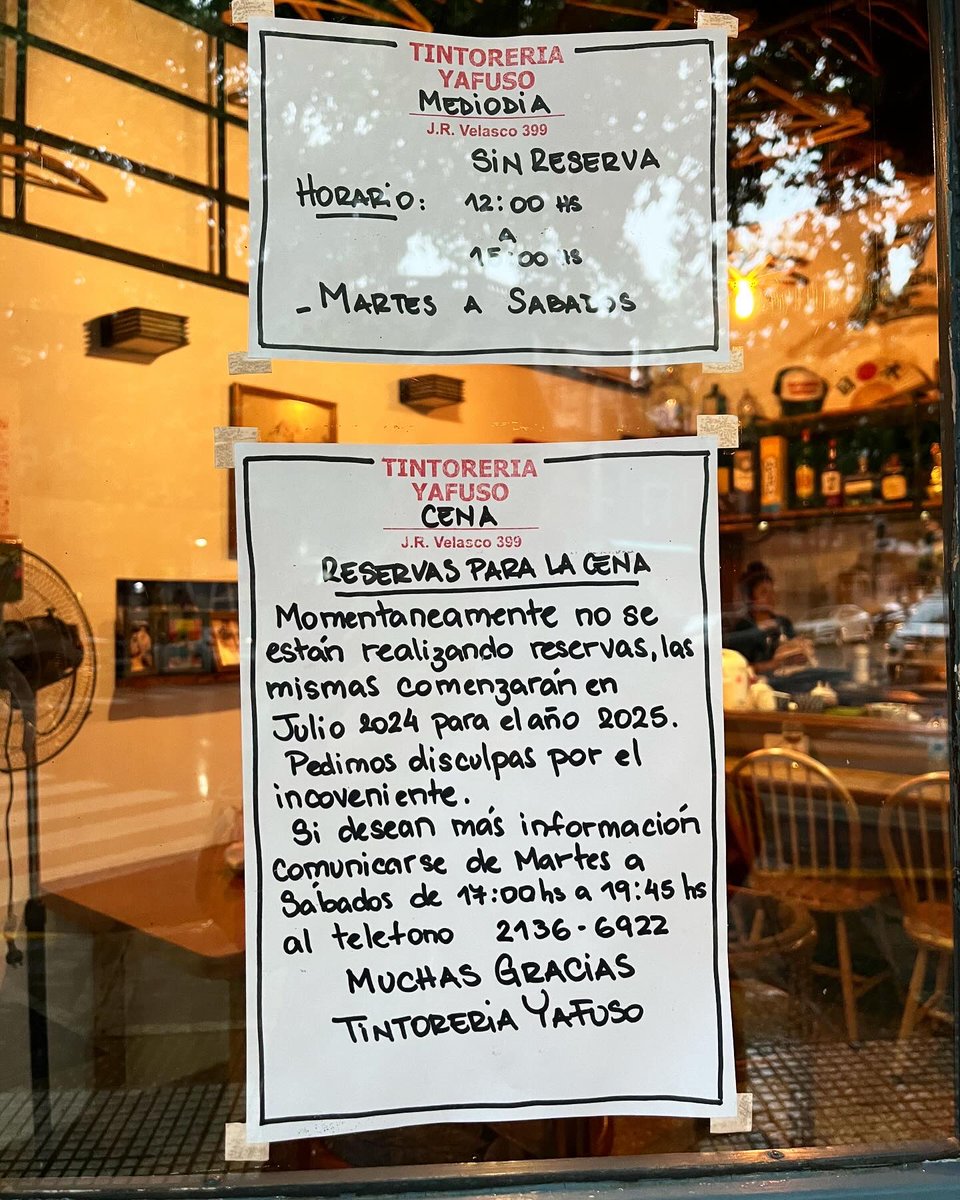 TINTORERIA
YAFUSO
MEDIODIA
J.R. Velasco 399
SIN RESERVA
HORARIO: 12:00 HS
A
15:00 HS
- MARTES A SABADOS
TINTORERIA
YAFUSO
CENA
J.R. Velasco 399
RESERVAS PARA LA CENA
Momentaneamente no se
están realizando reservas, las
mismas comenzarán en
Julio 2024 para el año 2025.
Pedimos disculpas por el
incoveniente.
Si desean más información
comunicarse de Martes a
Sábados de 17:00 hs a 19:45 hs
al telefono 2136-6922
MUCHAS GRACIAS
TINTORERIA YAFUSO